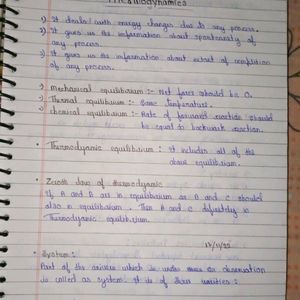 Thermodynamics
1) It deals with energy changes due to any process.
2) It gives us the information about spontaneity of
any process.
3) It gives us the information about extent of completion
of any process.
1) mechanical equilibrium :- Net force should be 0.
2) Thermal equilibrium :- Same temperature.
3) chemical equilibrium :- Rate of forward reaction should
be equal to backward reaction.
Thermodyamic equilibrium : It includes all of the
above equilibrium.
Zeroth law of thermodynamic
If A and B are in equilibrium as B and C should
also in equilibrium. Then A and C definitely in
Thermodynamic equilibrium.
System :
Part of the universe which is under observation
is called as system. It is of three varities :